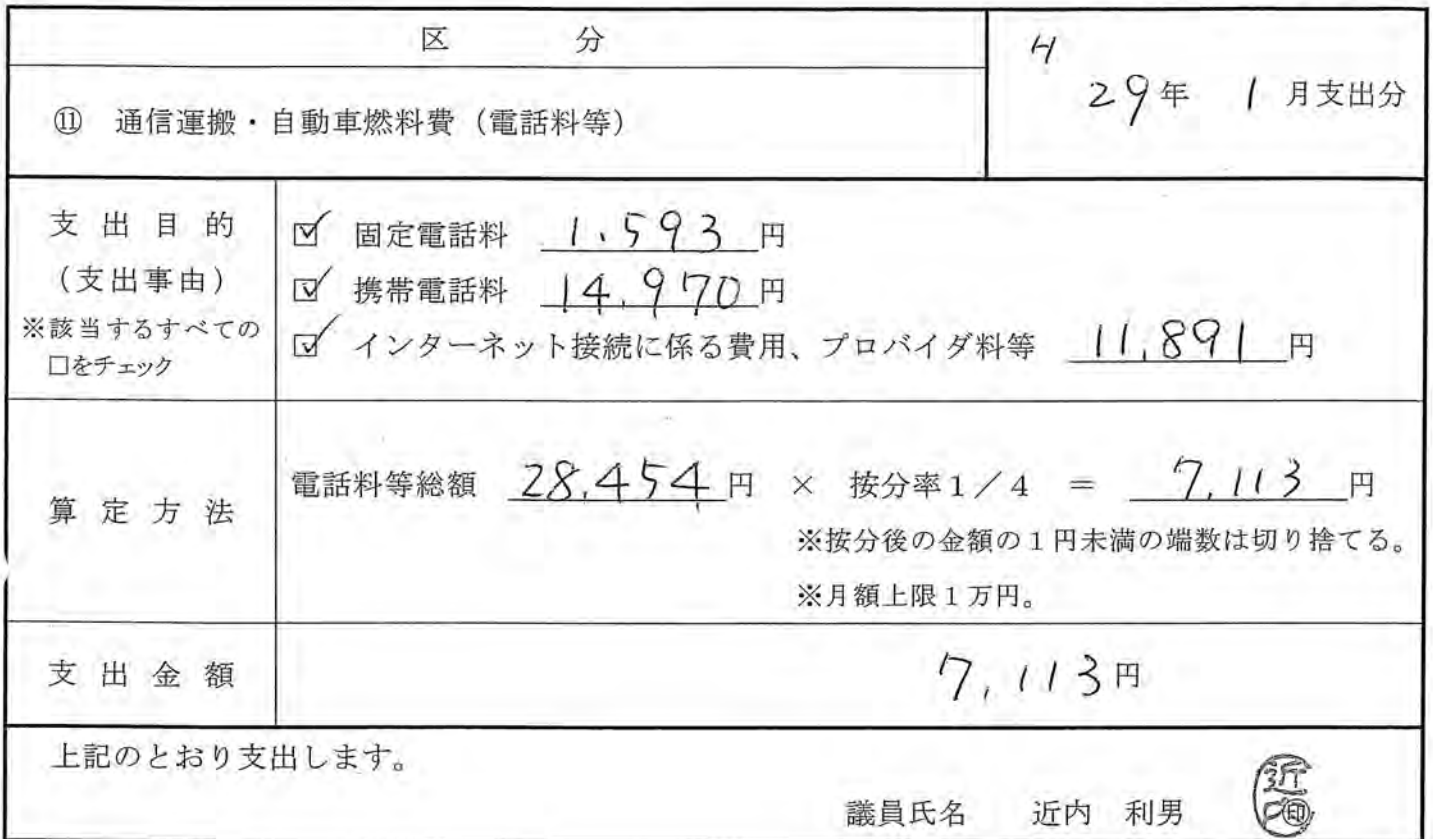 区 分
H
29年 1月支出分
⑪ 通信運搬・自動車燃料費（電話料等）
支出目的
（支出事由）
※該当するすべての
□をチェック
☑ 固定電話料 1.593円
☑ 携帯電話料 14.970円
☑ インターネット接続に係る費用、プロバイダ料等 11,891円
算定方法
電話料等総額 28.454円 × 按分率1／4 ＝ 7,113円
※按分後の金額の1円未満の端数は切り捨てる。
※月額上限1万円。
支出金額
7,113円
上記のとおり支出します。
議員氏名 近内 利男
近
㊞